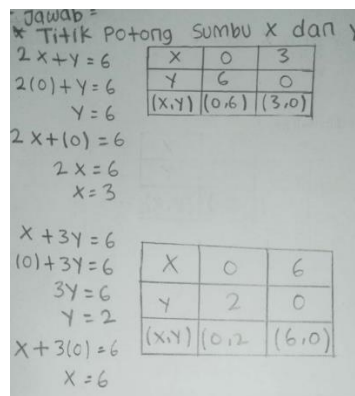 Jawab =
* Titik Potong Sumbu x dan
2x + y = 6
2(0) + y = 6
y = 6
2x + (0) = 6
2x = 6
x = 3
X 0 3
Y 6 0
(x,y) (0,6) (3,0)
x + 3y = 6
(0) + 3y = 6
3y = 6
y = 2
x + 3(0) = 6
x = 6
X 0 6
Y 2 0
(x,y) (0,2 (6,0)